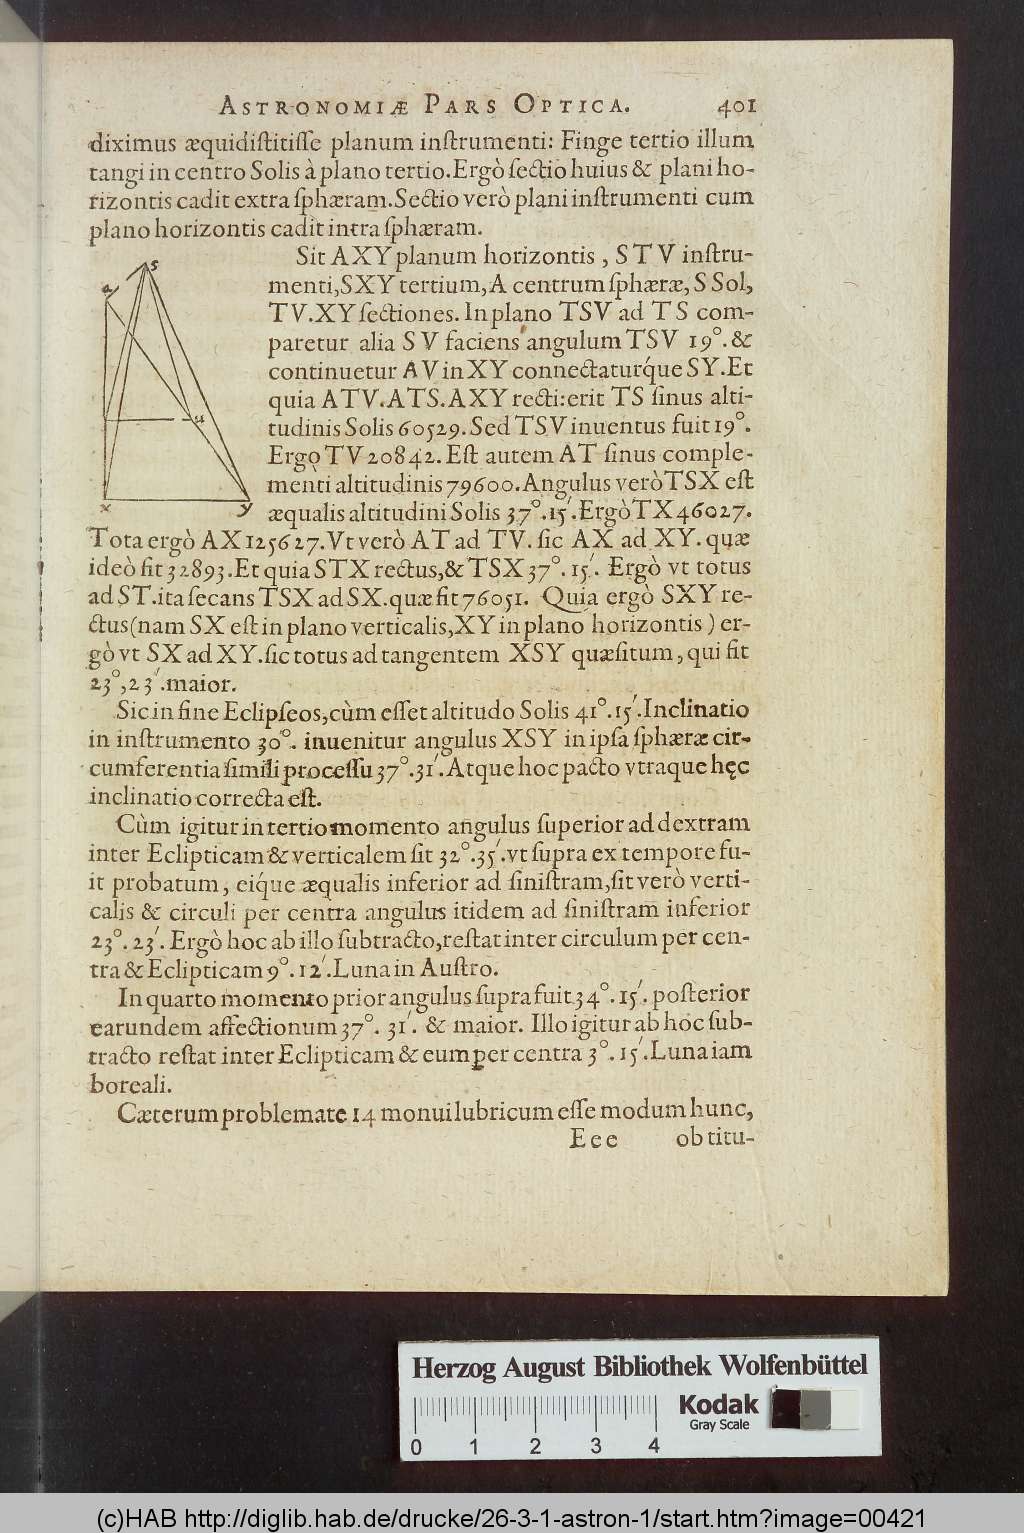 ASTRONOMIÆ PARS OPTICA. 401
diximus æquidiſtitiſſe planum inſtrumenti: Finge tertio illum
tangi in centro Solis à plano tertio. Ergò ſectio huius & plani ho-
rizontis cadit extra ſphæram. Sectio verò plani inſtrumenti cum
plano horizontis cadit intra ſphæram.
Sit AXY planum horizontis, STV inſtru-
menti, SXY tertium, A centrum ſphæræ, S Sol,
TV. XY ſectiones. In plano TSV ad TS com-
paretur alia SV faciens angulum TSV 19°. &
continuetur AV in XY connectaturq́ue SY. Et
quia ATV. ATS. AXY recti: erit TS ſinus alti-
tudinis Solis 60529. Sed TSV inuentus fuit 19°.
Ergo TV 20842. Eſt autem AT ſinus comple-
mènti altitudinis 79600. Angulus verò TSX eſt
æqualis altitudini Solis 37°. 15′. Ergò TX 46027.
Tota ergò AX 125627. Vt verò AT ad TV. ſic AX ad XY. quæ
ideò fit 32893. Et quia STX rectus, & TSX 37°. 15′. Ergò vt totus
ad ST. ita ſecans TSX ad SX. quæ fit 76051. Quia ergò SXY re-
ctus (nam SX eſt in plano verticalis, XY in plano horizontis) er-
gò vt SX ad XY. ſic totus ad tangentem XSY quæſitum, qui fit
23°, 23′. maior.
Sic in fine Eclipſeos, cùm eſſet altitudo Solis 41°. 15′. Inclinatio
in inſtrumento 30°. inuenitur angulus XSY in ipſa ſphæræ cir-
cumferentia ſimili proceſſu 37°. 31′. Atque hoc pacto vtraque hęc
inclinatio correcta eſt.
Cùm igitur in tertio momento angulus ſuperior ad dextram
inter Eclipticam & verticalem ſit 32°. 35′. vt ſupra ex tempore fu-
it probatum, eiq́ue æqualis inferior ad ſiniſtram, ſit verò verti-
calis & circuli per centra angulus itidem ad ſiniſtram inferior
23°. 23′. Ergò hoc ab illo ſubtracto, reſtat inter circulum per cen-
tra & Eclipticam 9°. 12′. Luna in Auſtro.
In quarto momento prior angulus ſupra fuit 34°. 15′. poſterior
earundem affectionum 37°. 31′. & maior. Illo igitur ab hoc ſub-
tracto reſtat inter Eclipticam & eum per centra 3°. 15′. Luna iam
boreali.
Cæterum problemate 14 monui lubricum eſſe modum hunc,
Eee ob titu-
s
a
u
x y
Herzog August Bibliothek Wolfenbüttel
Kodak
Gray Scale
0 1 2 3 4
(c)HAB http://diglib.hab.de/drucke/26-3-1-astron-1/start.htm?image=00421